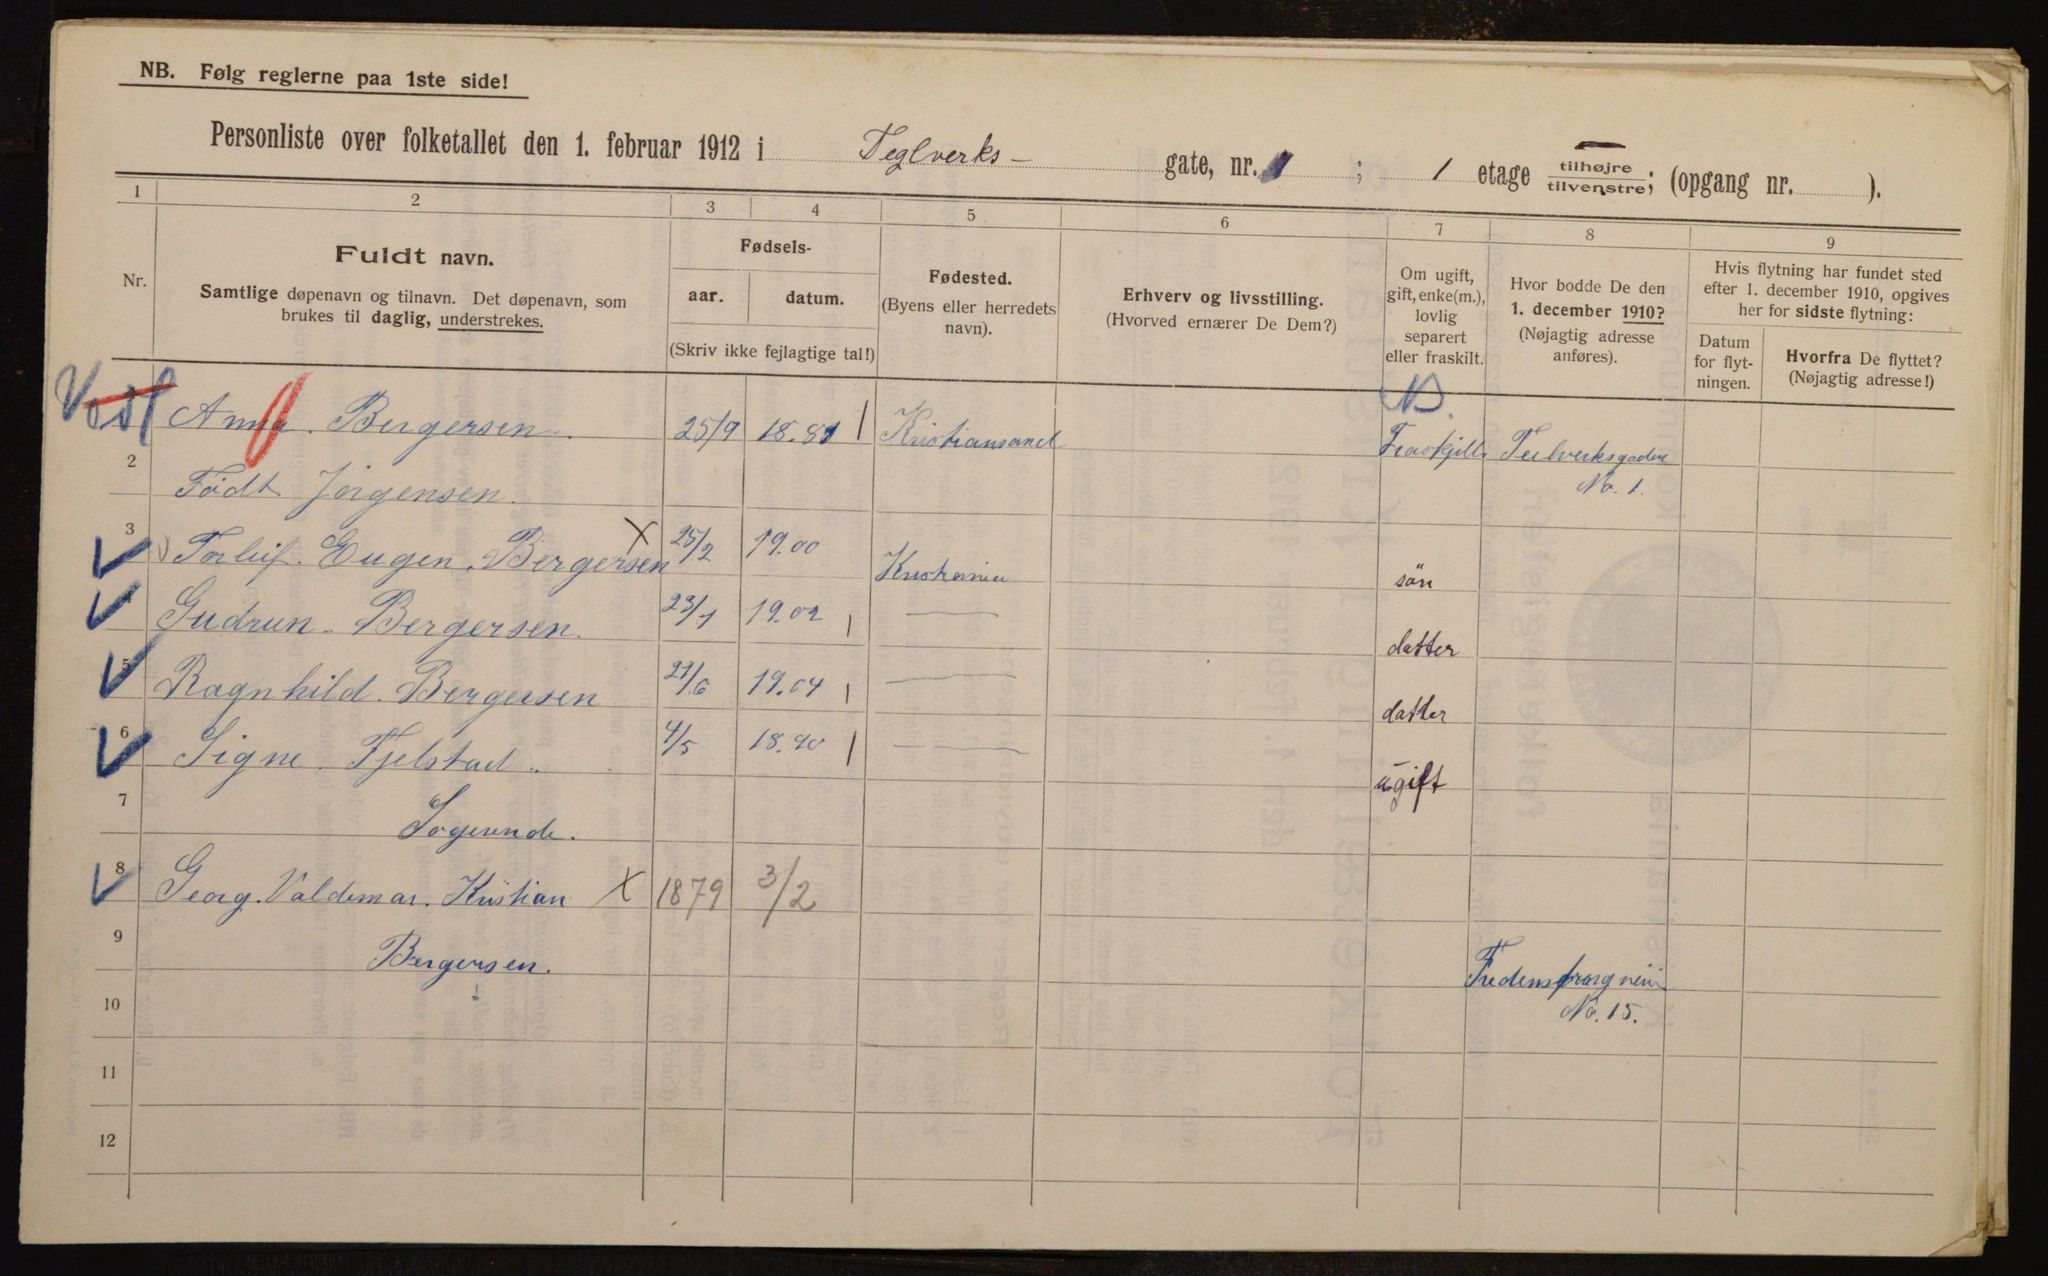 NB. Følg reglerne paa 1ste side!
Personliste over folketallet den 1. februar 1912 i Teglverks- gate, nr. 1 ; 1 etage tilhøjre/tilvenstre; (opgang nr. ).
1 2 3 4 5 6 7 8 9
Nr.
Fuldt navn.
Samtlige døpenavn og tilnavn. Det døpenavn, som
brukes til daglig, understrekes.
Fødsels-
aar. datum.
(Skriv ikke fejlagtige tal!)
Fødested.
(Byens eller herredets
navn).
Erhverv og livsstilling.
(Hvorved ernærer De Dem?)
Om ugift,
gift, enke(m.),
lovlig
separert
eller fraskilt.
Hvor bodde De den
1. december 1910?
(Nøjagtig adresse
anføres).
Hvis flytning har fundet sted
efter 1. december 1910, opgives
her for sidste flytning:
Datum
for flyt-
ningen.
Hvorfra De flyttet?
(Nøjagtig adresse!)
Anna. Bergersen. 25/9 18.81 Kristiansand Fraskjilt Teilverksgaden
No. 1.
2 Født Jörgensen.
3 Torleif. Eugen. Bergersen X 25/2 19.00 Kristiania sön
4 Gudrun. Bergersen. 23/1 19.02 — datter
5 Ragnhild. Bergersen 21/6 19.04 — datter
6 Signe Fjelstad. 4/5 18.90 — ugift
7 Logerende.
8 Georg. Valdemar. Kristian X 1879 3/2
9 Bergersen. Fredensborgveien
No. 15.
10
11
12